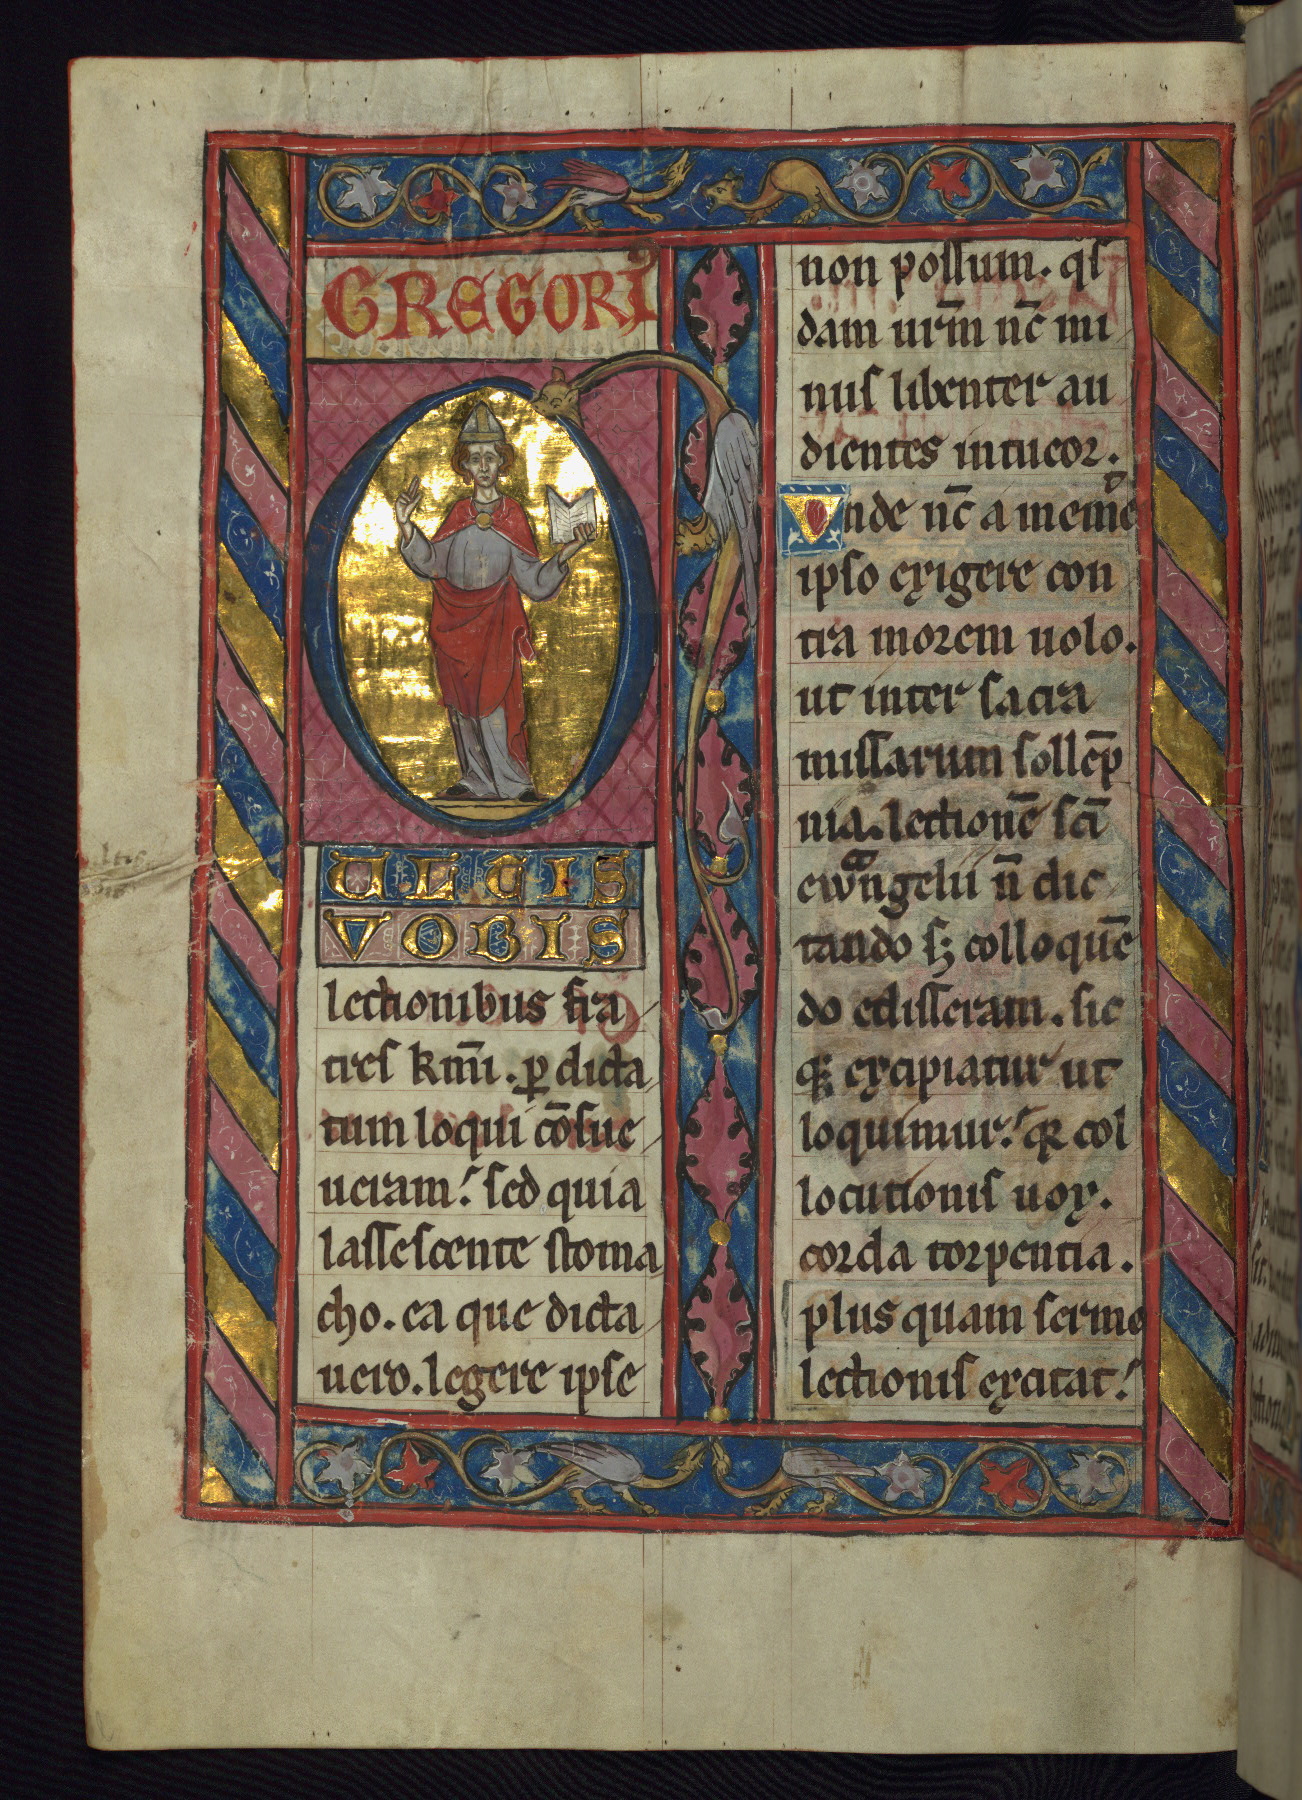 GREGORI
ULTIS
VOBIS
lectionibus fra
tres km̄i. ꝑ dicta
tum loqui cōsue
ueram. sed quia
lassescente stoma
cho. ea que dicta
uero. legere ipse
non possum. q̇s
dam urm̄ nc̄ mi
nus libenter au
dientes intueor.
Vnde nc̄ a meme
ipso exigere con
tra morem uolo.
ut inter sacra
missarum sollēp
nia. lectionē sc̄i
ewangelii n̄ dic
tando sꝫ colloquē
do edisseram. sic
qꝫ excipiatur ut
loquimur. qꝛ col
locutionis uox.
corda torpentia.
plus quam sermo
lectionis excitat.